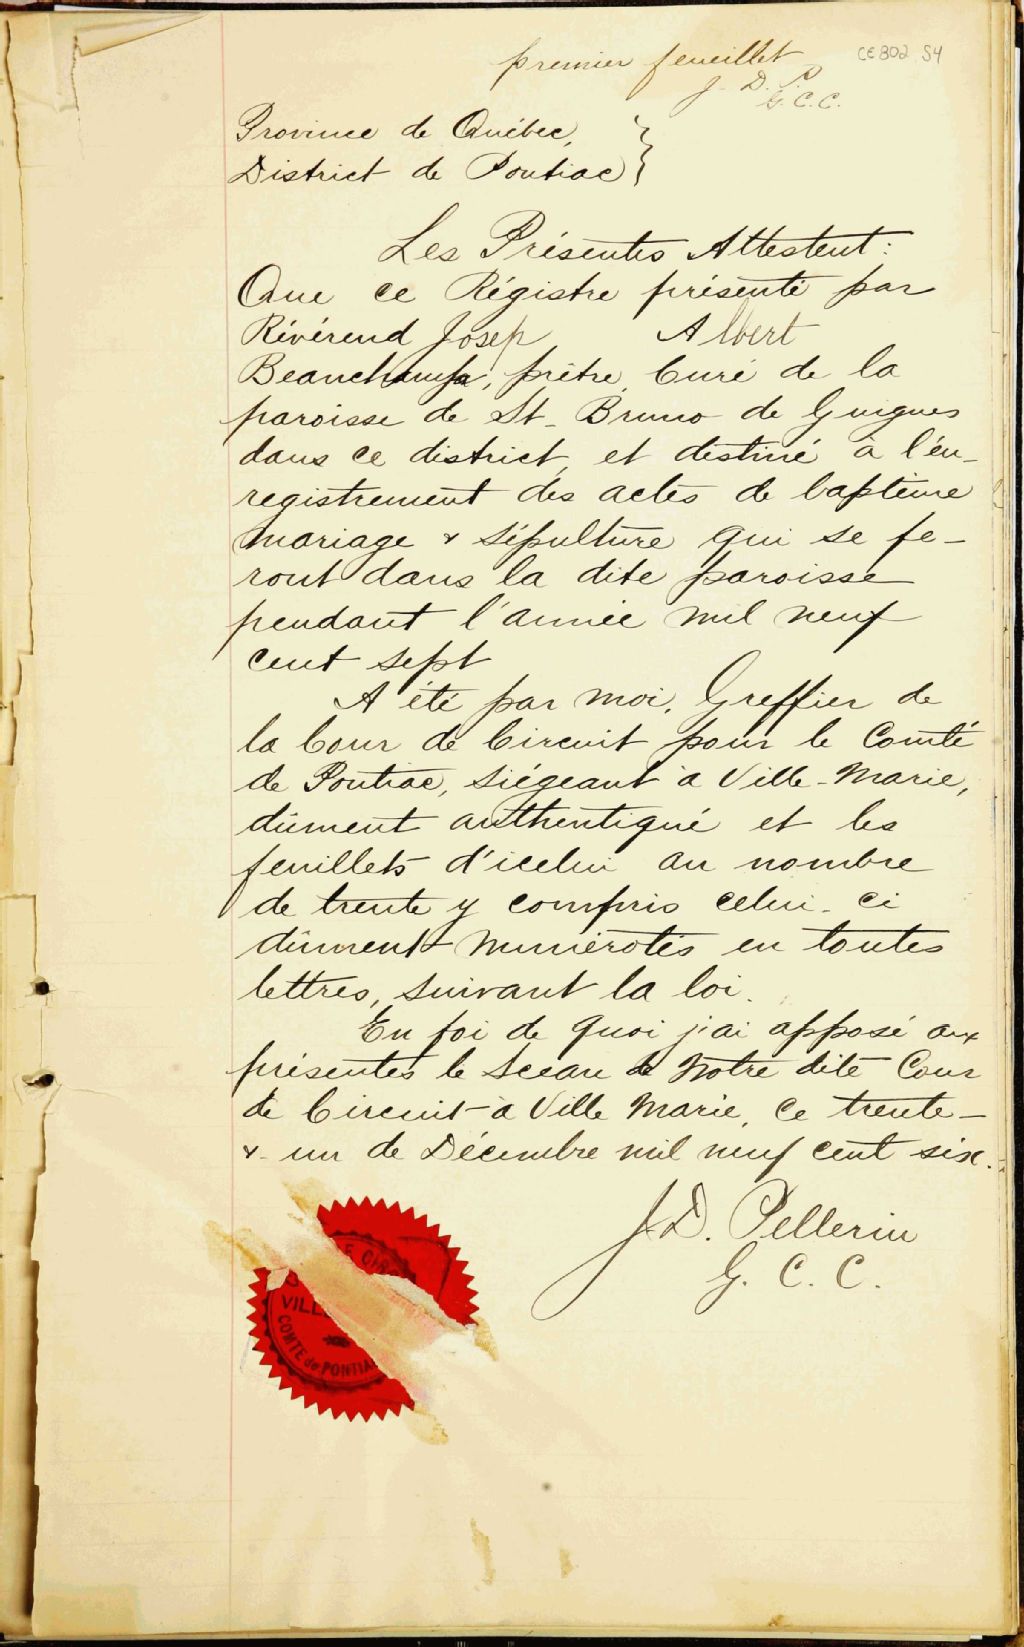 premier feuillet
CE802 S4
J. D. P.
G. C. C.
Province de Québec,
District de Pontiac
Les Présentes Attestent:
Que ce Régistre présenté par
Révérend Josep Albert
Beauchamp, prêtre, Curé de la
paroisse de St-Bruno de Guigues
dans ce district, et destiné à l'en-
registrement des actes de baptême
mariage & sépulture qui se fe-
ront dans la dite paroisse
pendant l'année mil neuf
cent sept
A été par moi, Greffier de
la Cour de Circuit pour le Comté
de Pontiac, siégeant à Ville-Marie,
dûment authentiqué et les
feuillets d'icelui au nombre
de trente y compris celui-ci
dûment numérotés en toutes
lettres, suivant la loi.
En foi de quoi j'ai apposé aux
présentes le Sceau de Notre dite Cour
de Circuit à Ville Marie, ce trente-
& un de Décembre mil neuf cent six.
J. D. Pellerin
G. C. C.
VILLE
COMTÉ de PONTIAC